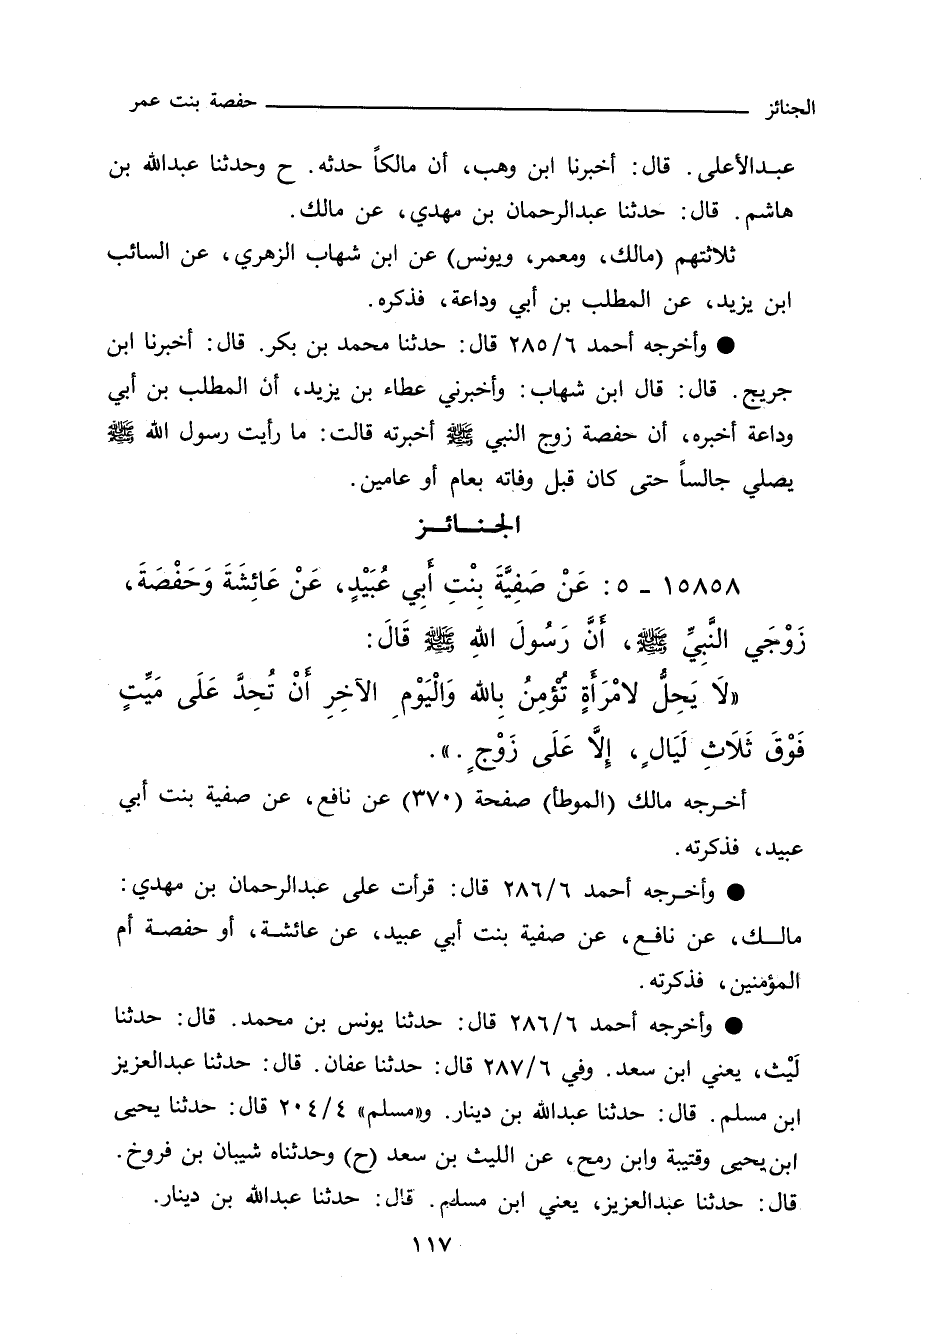 الجنائز ــــــــــــــــ حفصة بنت عمر
عبدالأعلى. قال: أخبرنا ابن وهب، أن مالكاً حدثه. ح وحدثنا عبدالله بن
هاشم. قال: حدثنا عبدالرحمان بن مهدي، عن مالك.
ثلاثتهم (مالك، ومعمر، ويونس) عن ابن شهاب الزهري، عن السائب
ابن يزيد، عن المطلب بن أبي وداعة، فذكره.
● وأخرجه أحمد ٢٨٥/٦ قال: حدثنا محمد بن بكر. قال: أخبرنا ابن
جريج. قال: قال ابن شهاب: وأخبرني عطاء بن يزيد، أن المطلب بن أبي
وداعة أخبره، أن حفصة زوج النبي ﷺ أخبرته قالت: ما رأيت رسول الله ﷺ
يصلي جالساً حتى كان قبل وفاته بعام أو عامين.
الجنائز
١٥٨٥٨ - ٥: عَنْ صَفِيَّةَ بِنْتِ أَبِي عُبَيْدٍ، عَنْ عَائِشَةَ وَحَفْصَةَ،
زَوْجَي النَّبِيِّ ﷺ، أَنَّ رَسُولَ اللهِ ﷺ قَالَ:
«لَا يَحِلُّ لامْرَأَةٍ تُؤْمِنُ بِالله وَالْيَوْمِ الآخِرِ أَنْ تُحِدَّ عَلَى مَيِّتٍ
فَوْقَ ثَلَاثِ لَيَالٍ، إِلَّا عَلَى زَوْجٍ.».
أخرجه مالك (الموطأ) صفحة (٣٧٠) عن نافع، عن صفية بنت أبي
عبيد، فذكرته.
● وأخرجه أحمد ٢٨٦/٦ قال: قرأت على عبدالرحمان بن مهدي:
مالك، عن نافع، عن صفية بنت أبي عبيد، عن عائشة، أو حفصة أم
المؤمنين، فذكرته.
● وأخرجه أحمد ٢٨٦/٦ قال: حدثنا يونس بن محمد. قال: حدثنا
لَيْث، يعني ابن سعد. وفي ٢٨٧/٦ قال: حدثنا عفان. قال: حدثنا عبدالعزيز
ابن مسلم. قال: حدثنا عبدالله بن دينار. و«مسلم» ٢٠٤/٤ قال: حدثنا يحيى
ابن يحيى وقتيبة وابن رمح، عن الليث بن سعد (ح) وحدثناه شيبان بن فروخ.
قال: حدثنا عبدالعزيز، يعني ابن مسلم. قال: حدثنا عبدالله بن دينار.
١١٧